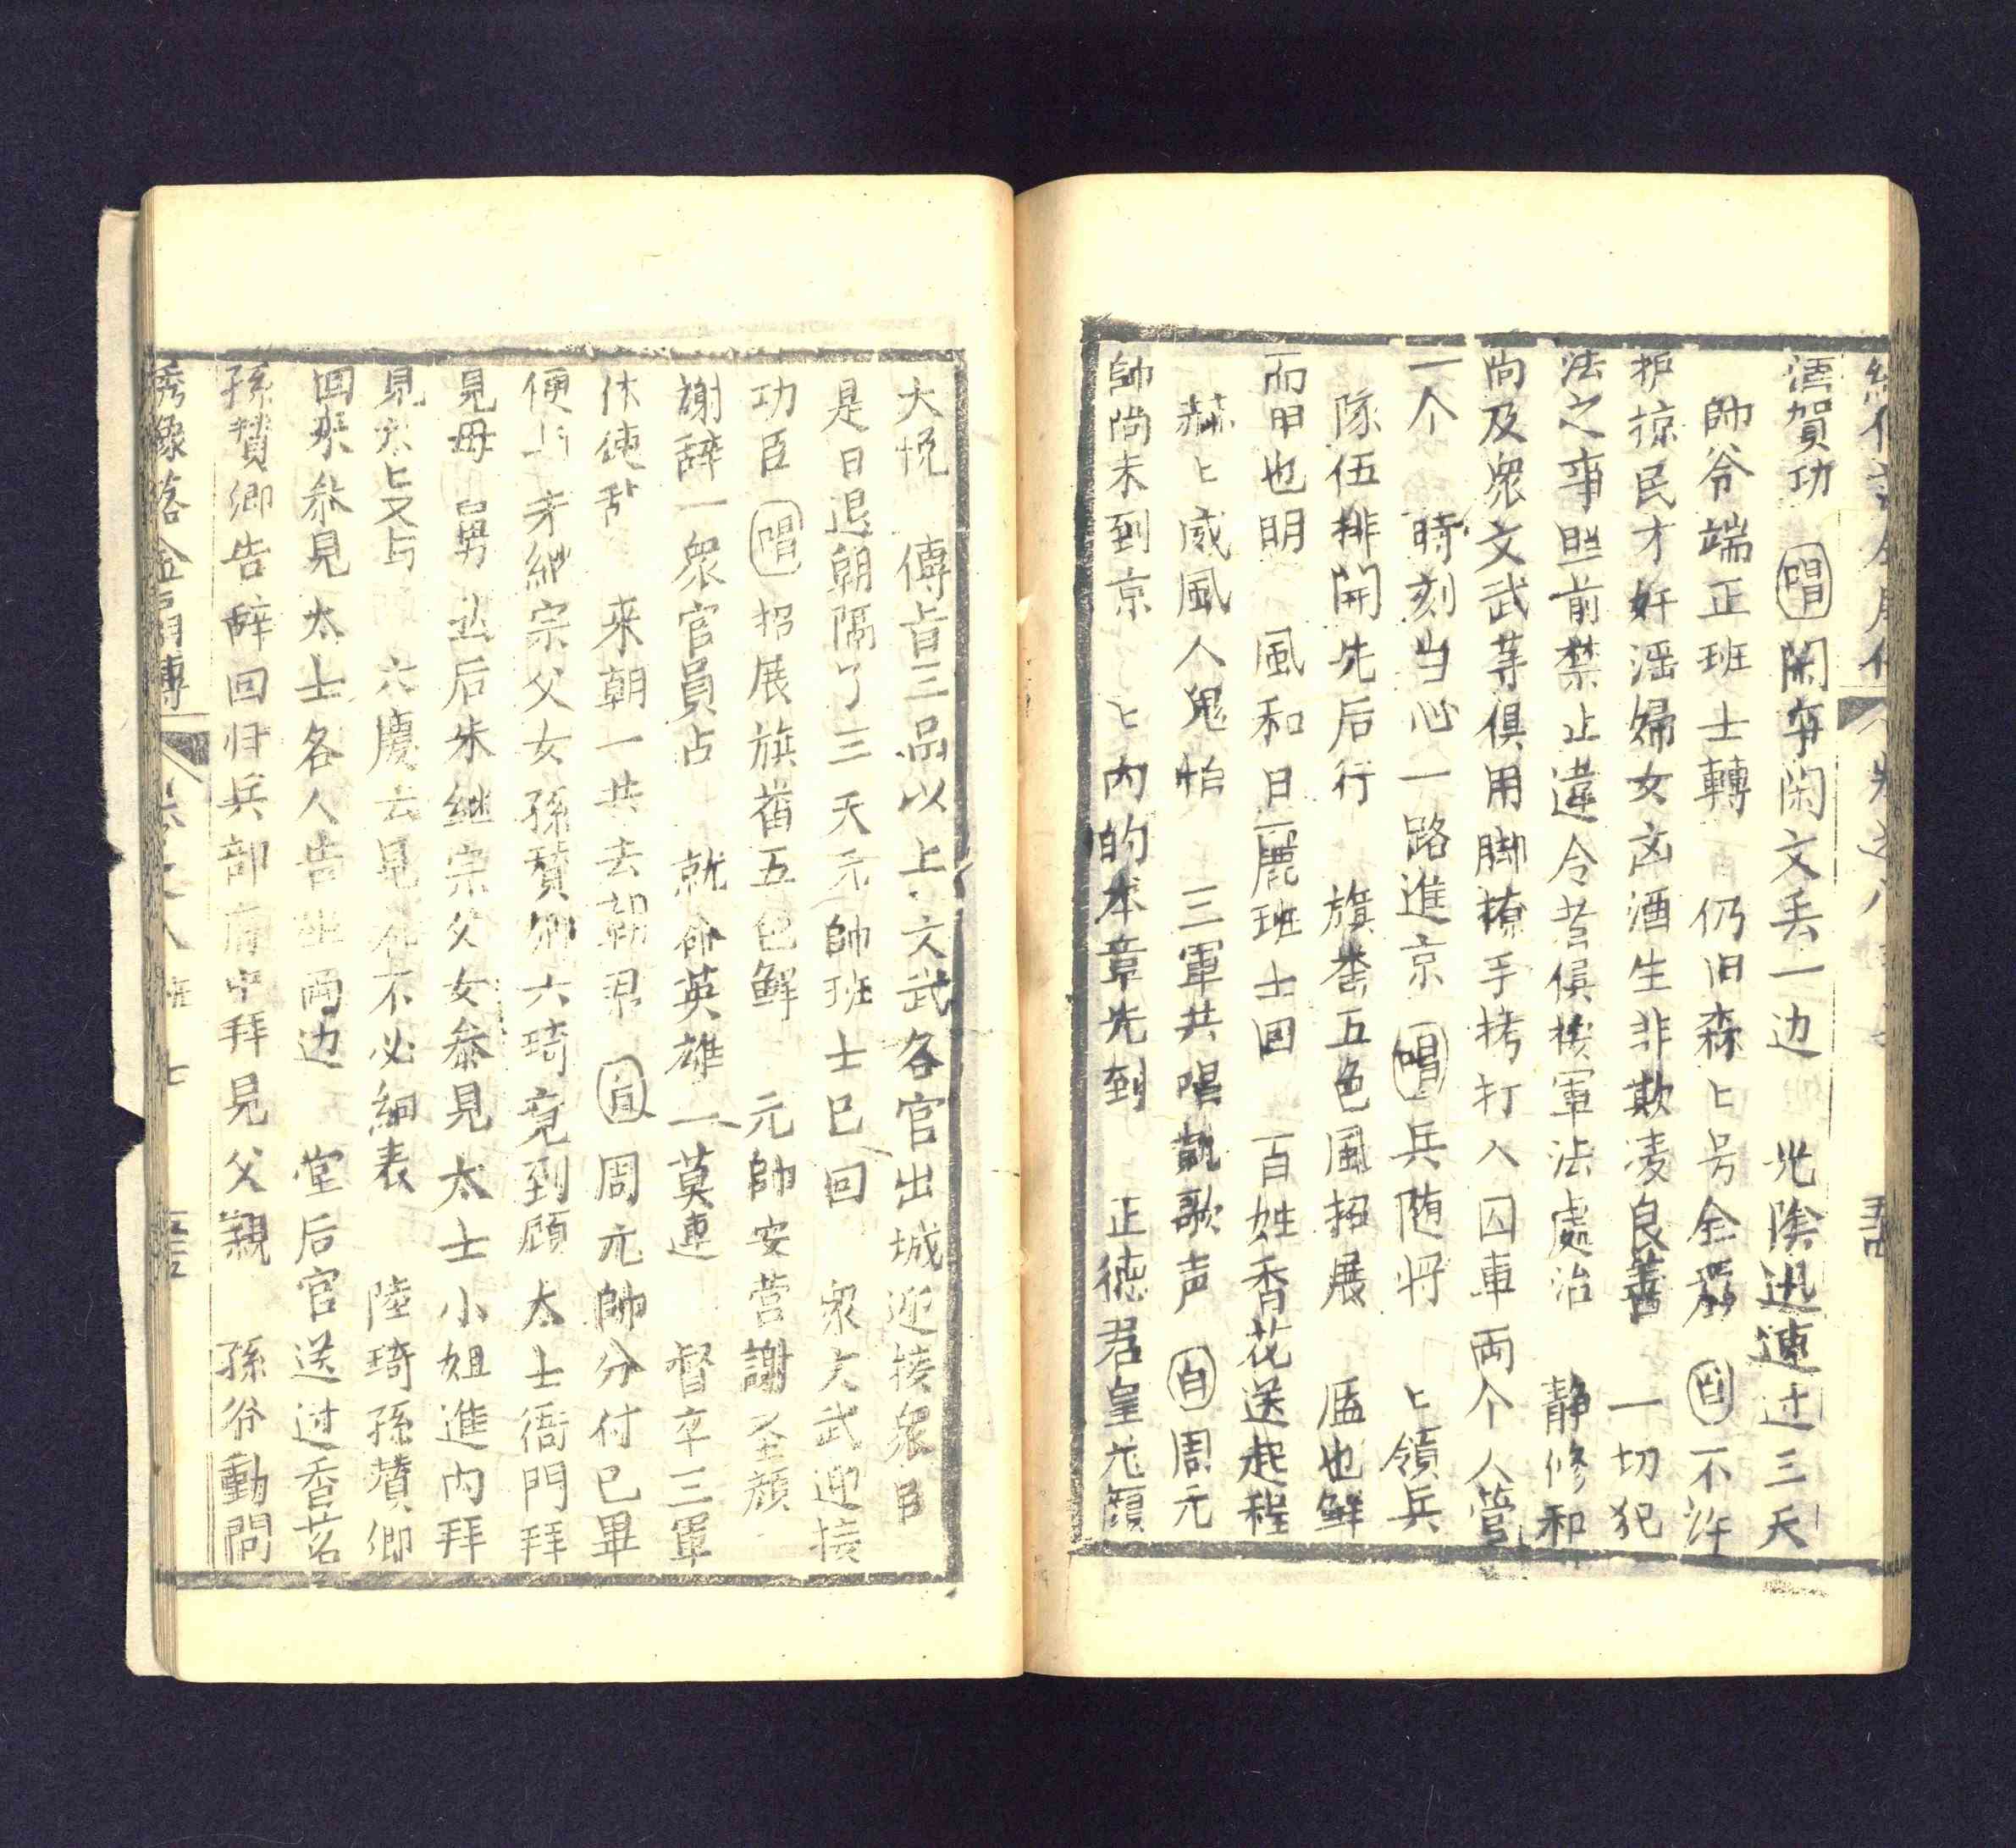 酒賀功 唱 閑弃閑文丢一边 光陰迅速过三天
帥爷端正班士轉 仍旧森〻号令嚴 白 不許
護掠民才奸滛婦女卤酒生非欺凌良善 一切犯
法之事照前禁止違令者俟挨軍法處治 静修和
尚及衆文武等俱用脚撩手拷打入囚車両个人管
一个 時刻当心一路進京 唱 兵随将 〻領兵
隊伍排開先后行 旗旛五色風招展 盔也鲜
而甲也明 風和日麗班士回 百姓香花送起程
赫〻威風人鬼怕 三軍共唱凱歌声 白 周元
帥尚未到京 〻内的本章先到 正德君皇尤顔
大悦 傳旨三品以上文武各官出城迎接衆臣
是日退朝隔了三天元帥班士已回 衆文武迎接
功臣 唱 招展旗旛五色鲜 元帥安营謝圣顔
謝辞一衆官員占 就命英雄一莫連 督卒三軍
休使乱 来朝一共去朝君 白 周元帥分付已畢
便与朱継宗父女孫賛卿六琦竟到顾太士衙門拜
見母舅 然后朱継宗父女叅見太士小姐進内拜
見太〻 六慶去見 不必細表 陸琦孫賛卿
回来叅見太士各人告坐両边 堂后官送过香茗
孫賛卿告辞回归兵部府中拜見父親 孫爷動問
綉像落金扇傳 卷之八 班 七